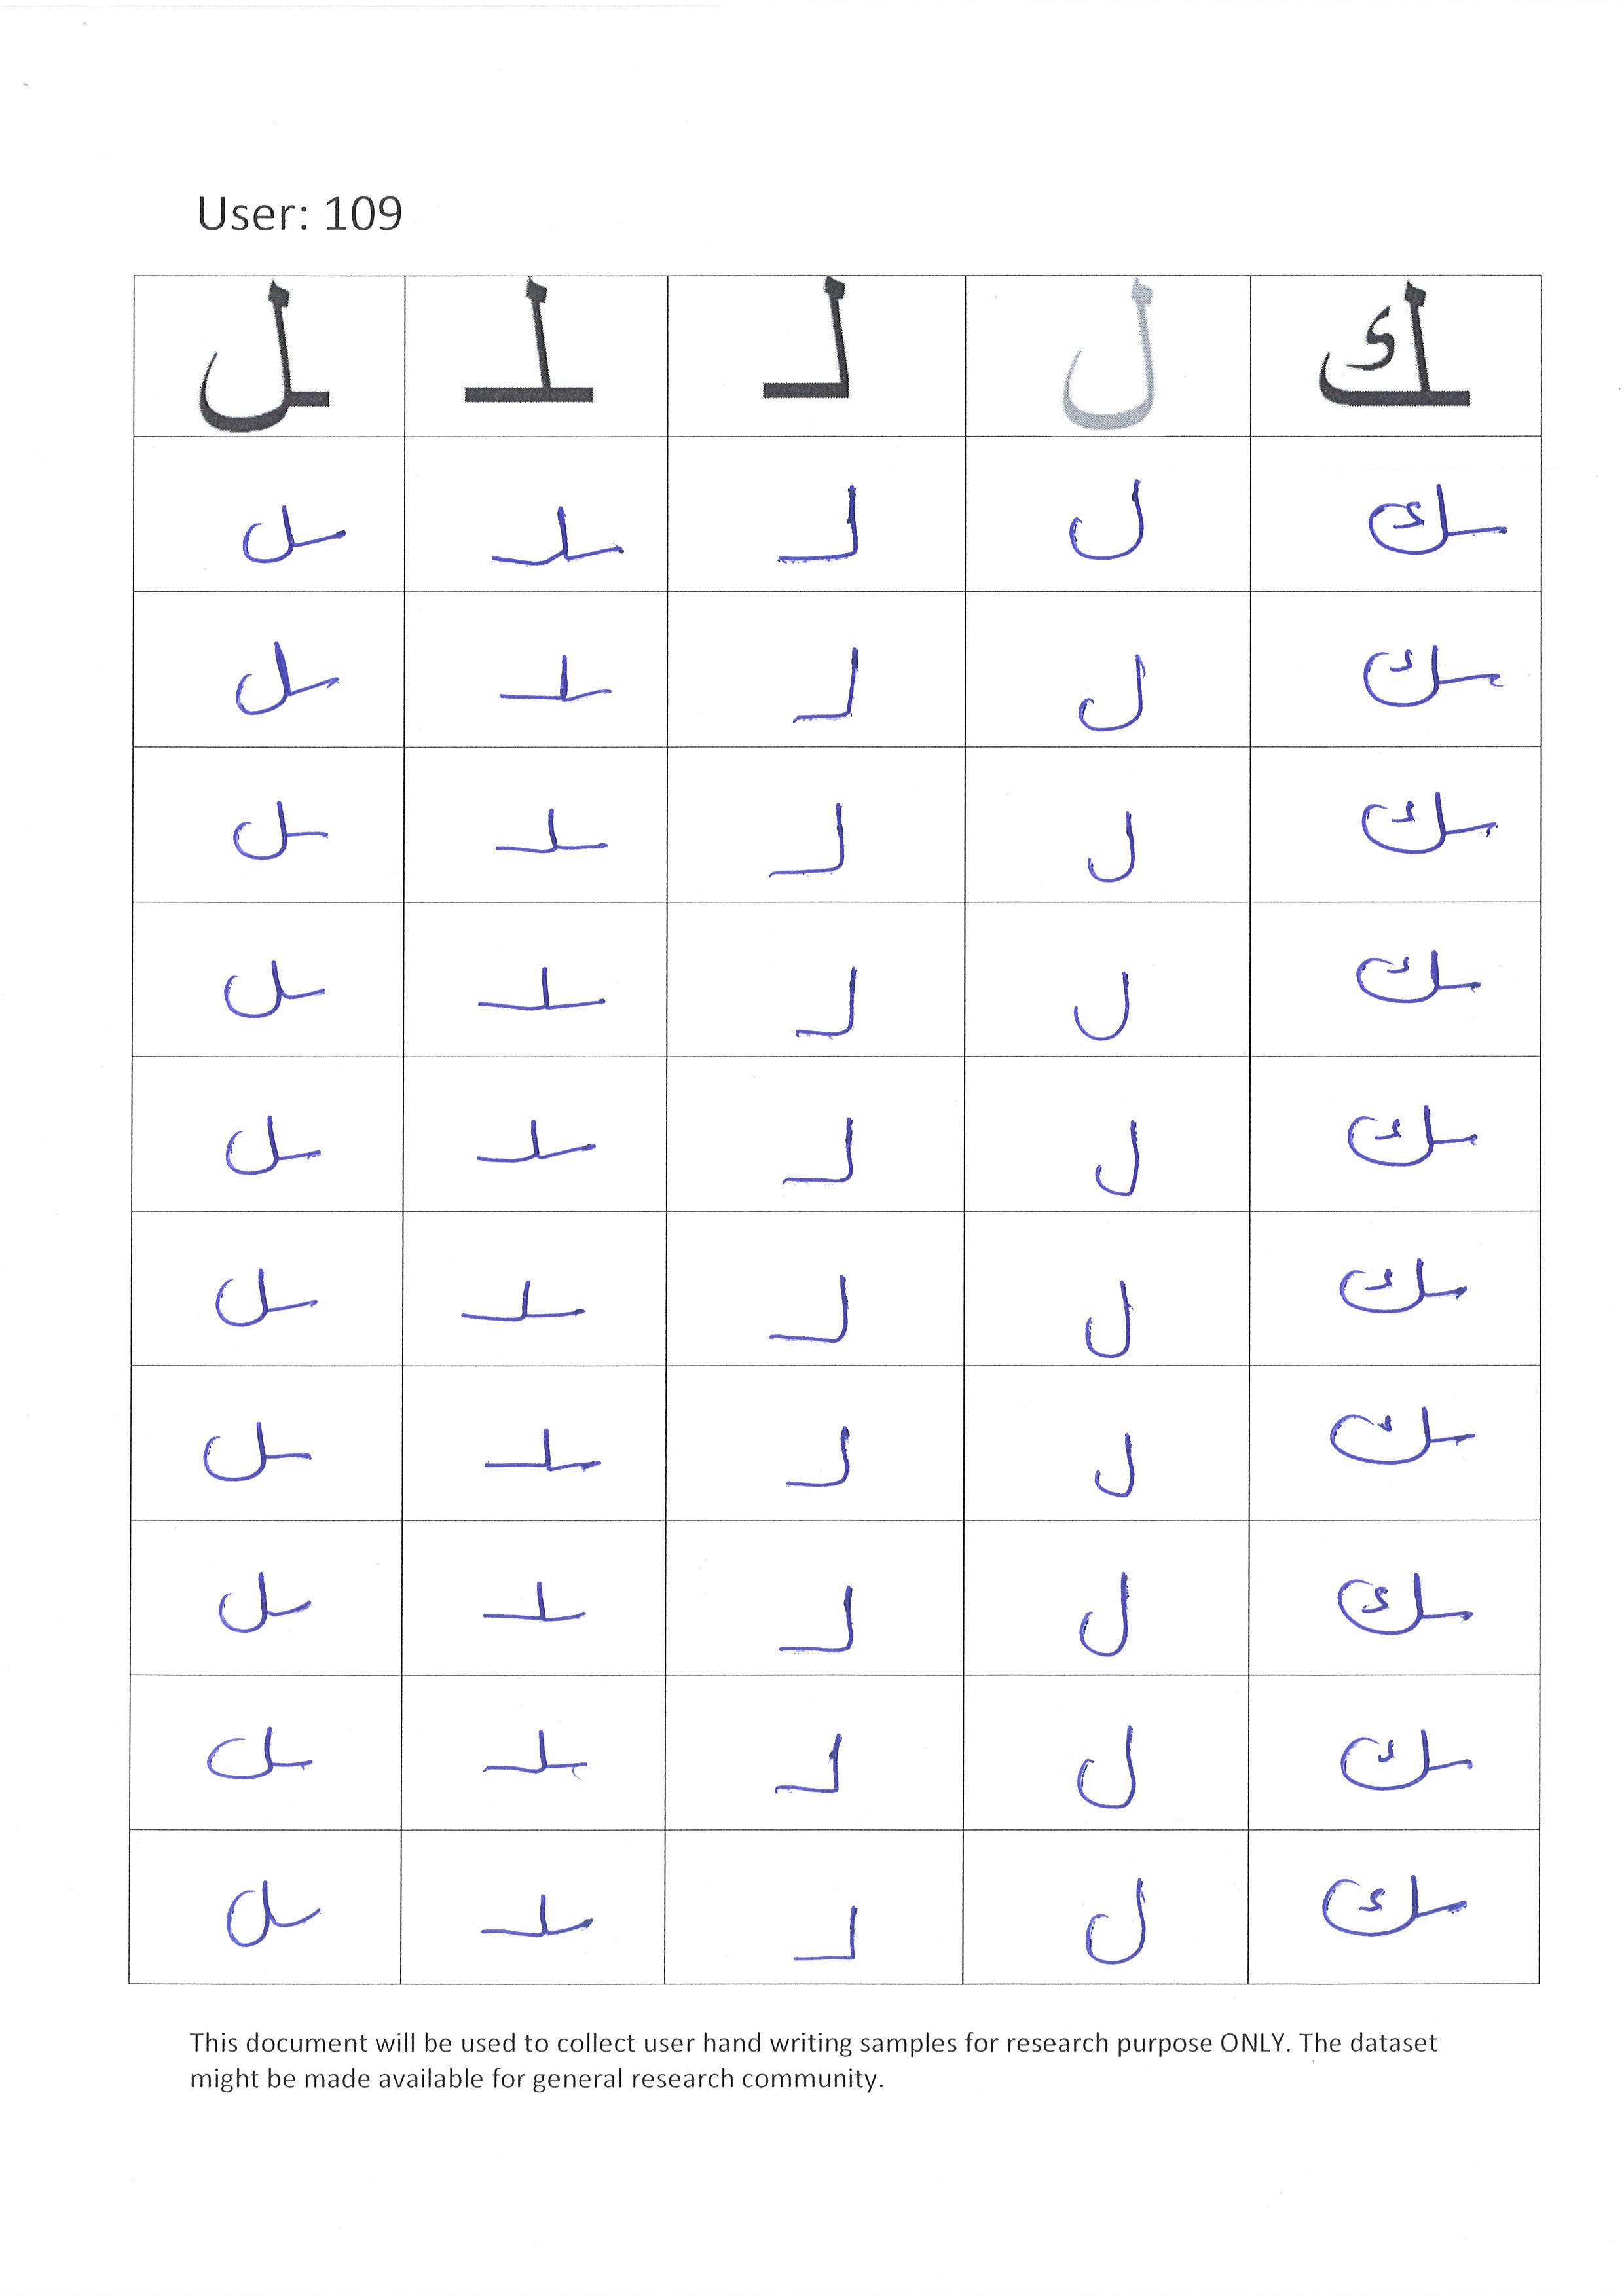 User: 109
ـل ـلـ لـ ل ـك
ـل ـلـ لـ ل ـك
ـل ـلـ لـ ل ـك
ـل ـلـ لـ ل ـك
ـل ـلـ لـ ل ـك
ـل ـلـ لـ ل ـك
ـل ـلـ لـ ل ـك
ـل ـلـ لـ ل ـك
ـل ـلـ لـ ل ـك
ـل ـلـ لـ ل ـك
ـل ـلـ لـ ل ـك
This document will be used to collect user hand writing samples for research purpose ONLY. The dataset
might be made available for general research community.